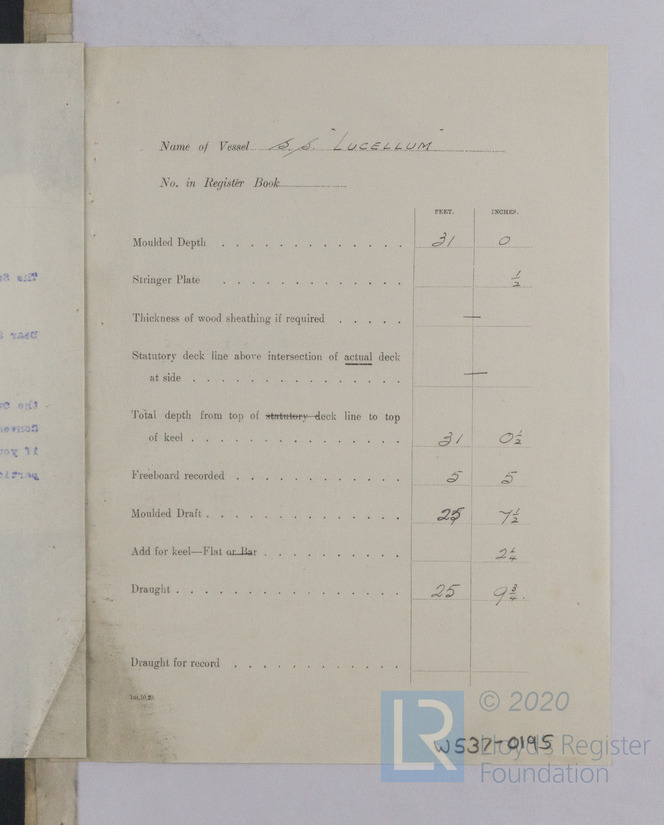 Name of Vessel S.S. "LUCELLUM"
No. in Register Book
FEET. INCHES.
Moulded Depth 31 0
Stringer Plate ½
Thickness of wood sheathing if required —
Statutory deck line above intersection of actual deck
at side —
Total depth from top of statutory deck line to top
of keel 31 0½
Freeboard recorded 5 5
Moulded Draft 25 7½
Add for keel—Flat or Bar 2¼
Draught 25 9¾.
Draught for record
© 2020
LR
W537-0195
Lloyd's Register
Foundation